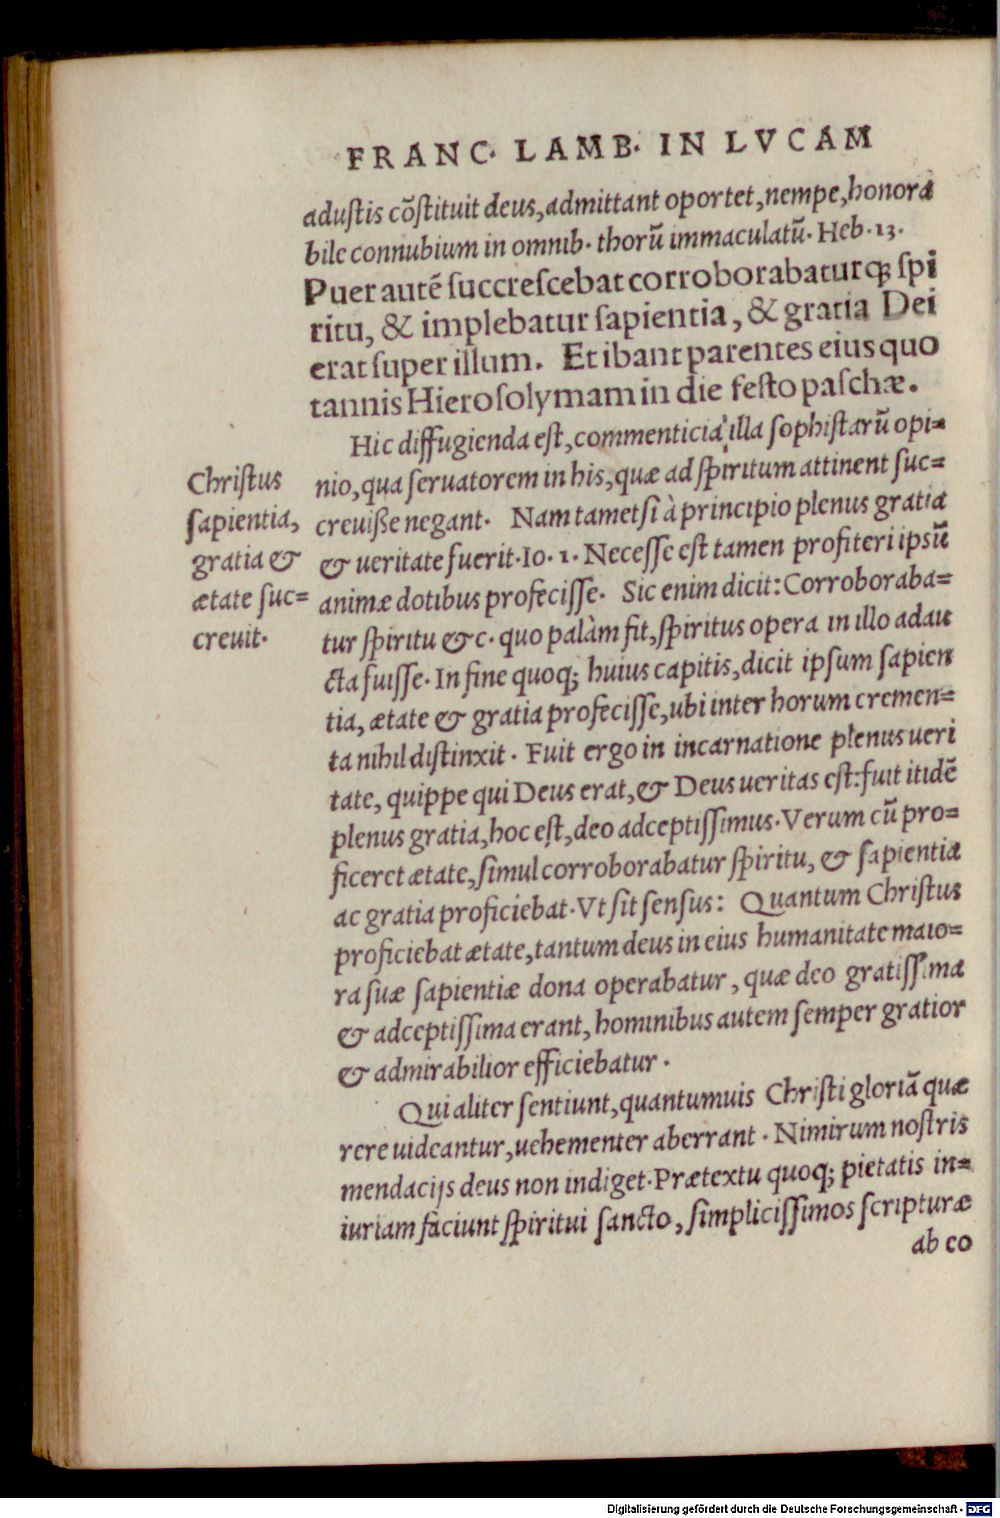 FRANC· LAMB· IN LVCAM
adustis cōstituit deus, admittant oportet, nempe, honora
bile connubium in omnib· thorū immaculatū· Heb·13·
Puer autē succrescebat corroborabaturq; spi
ritu, & implebatur sapientia, & gratia Dei
erat super illum. Et ibant parentes eius quo
tannis Hierosolymam in die festo paschæ.
Hic diffugienda est, commenticia illa sophistarū opi=
nio, qua seruatorem in his, quæ ad spiritum attinent suc=
creuisse negant· Nam tametsi à principio plenus gratia
& ueritate fuerit·Io·1· Necesse est tamen profiteri ipsū
animæ dotibus profecisse· Sic enim dicit: Corroboraba=
tur spiritu &c· quo palàm fit, spiritus opera in illo adau
cta fuisse· In fine quoq; huius capitis, dicit ipsum sapien
tia, ætate & gratia profecisse, ubi inter horum cremen=
ta nihil distinxit· Fuit ergo in incarnatione plenus ueri
tate, quippe qui Deus erat, & Deus ueritas est: fuit itidē
plenus gratia, hoc est, deo adceptissimus· Verum cū pro=
ficeret ætate, simul corroborabatur spiritu, & sapientia
ac gratia proficiebat· Vt sit sensus: Quantum Christus
proficiebat ætate, tantum deus in eius humanitate maio=
ra suæ sapientiæ dona operabatur, quæ deo gratissima
& adceptissima erant, hominibus autem semper gratior
& admirabilior efficiebatur·
Qui aliter sentiunt, quantumuis Christi gloriā quæ
rere uideantur, uehementer aberrant· Nimirum nostris
mendacijs deus non indiget· Prætextu quoq; pietatis in=
iuriam faciunt spiritui sancto, simplicissimos scripturæ
ab eo
Christus
sapientia,
gratia &
ætate suc=
creuit·
Digitalisierung gefördert durch die Deutsche Forschungsgemeinschaft - DFG